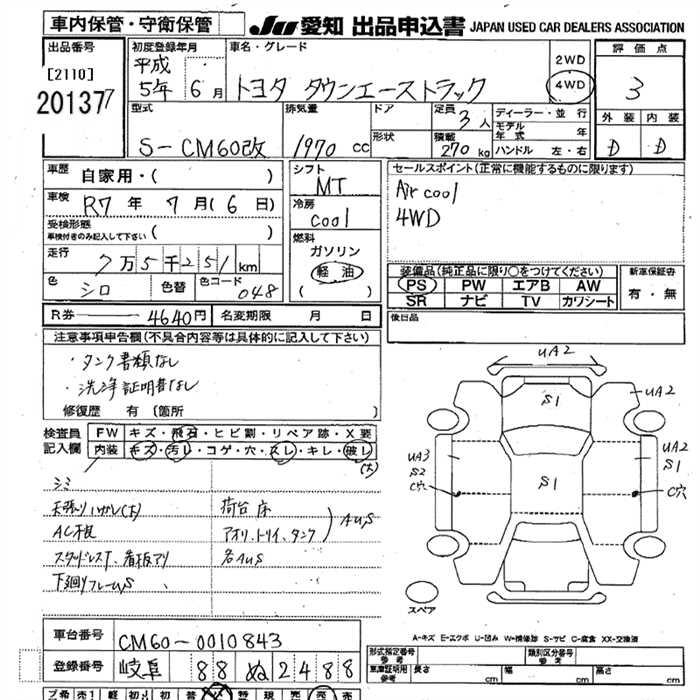 車内保管・守衛保管
JU 愛知 出品申込書 JAPAN USED CAR DEALERS ASSOCIATION
出品番号
[2110]
20137
初度登録年月
平成
5年 6月
車名・グレード
トヨタ タウンエーストラック
2WD
4WD
評価点
3
型式
S-CM60改
排気量
1970 cc
ドア
形状
定員
3人
積載
270 kg
ディーラー・並行
モデル年式 年
ハンドル 左・右
外装 内装
D D
車歴
自家用・( )
車検
R7年 7月(6日)
受検形態
車検付きのみ記入して下さい ( )
走行
7万5千251km
色 シロ 色替 色コード 048
シフト
MT
冷房
cool
燃料
ガソリン
軽油
( )
セールスポイント(正常に機能するものに限ります)
Air cool
4WD
装備品(純正品に限り○をつけてください)
PS PW エアB AW
SR ナビ TV カワシート
新車保証書
有・無
R券 4640円 名変期限 月 日
後日品
注意事項申告欄(不具合内容等は具体的に記入して下さい)
・タンク書類なし
・洗浄証明書なし
修復歴 有 〔箇所 〕
検査員記入欄
FW キズ・飛石・ヒビ割・リペア跡・X要
内装 キズ・汚レ・コゲ・穴・スレ・キレ・破レ
(大)
シミ
天張りハガレ(大) 荷台床
AC不良 アオリ、トリイ、タンク
AUS
スタッドレスT、看板アリ 各AUS
下廻りフレームS
UA2
S1
UA2
UA3
S2
C穴
S1
UA2
S1
C穴
スペア
A-キズ E-エクボ U-凹み W-補修跡 S-サビ C-腐食 XX-交換済
車台番号 CM60-0010843
登録番号 岐阜 88 ぬ 2488
形式指定番号
参考
類別区分番号
参考
車庫証明用
参考
長さ cm 幅 cm 高さ cm